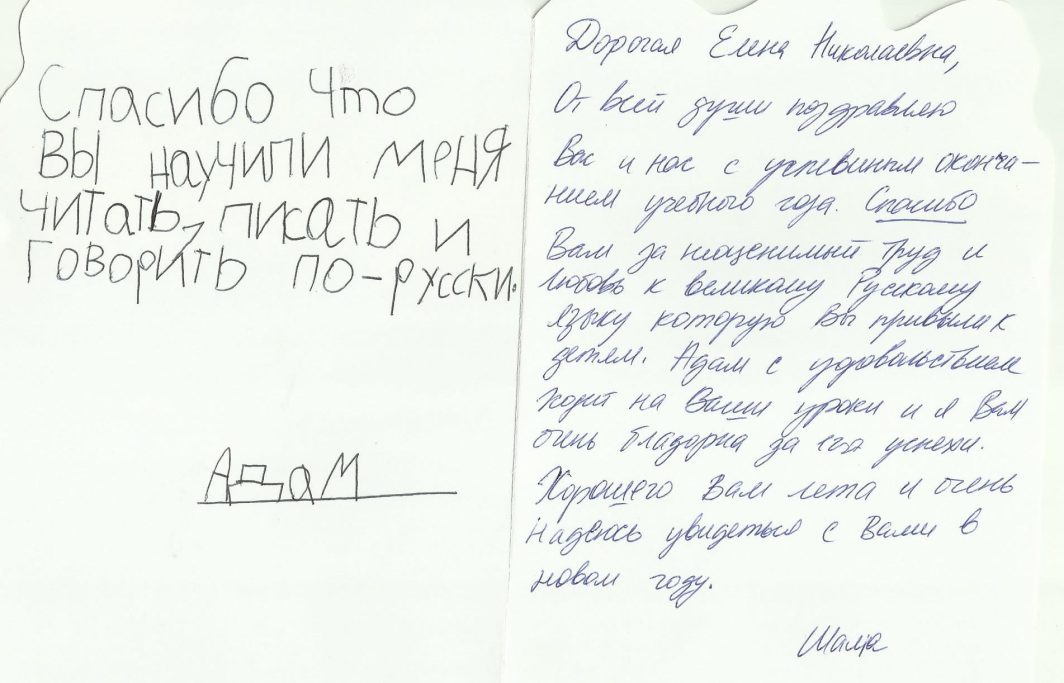 Спасибо что
вы научили меня
читать, писать и
говорить по-русски.
Адам
Дорогая Елена Николаевна,
От всей души поздравляю
Вас и нас с успешным оконча-
нием учебного года. Спасибо
Вам за неоценимый труд и
любовь к великому Русскому
языку которую Вы привили к
детям. Адам с удовольствием
ходит на Ваши уроки и я Вам
очень благодарна за его успехи.
Хорошего Вам лета и очень
надеюсь увидеться с Вами в
новом году.